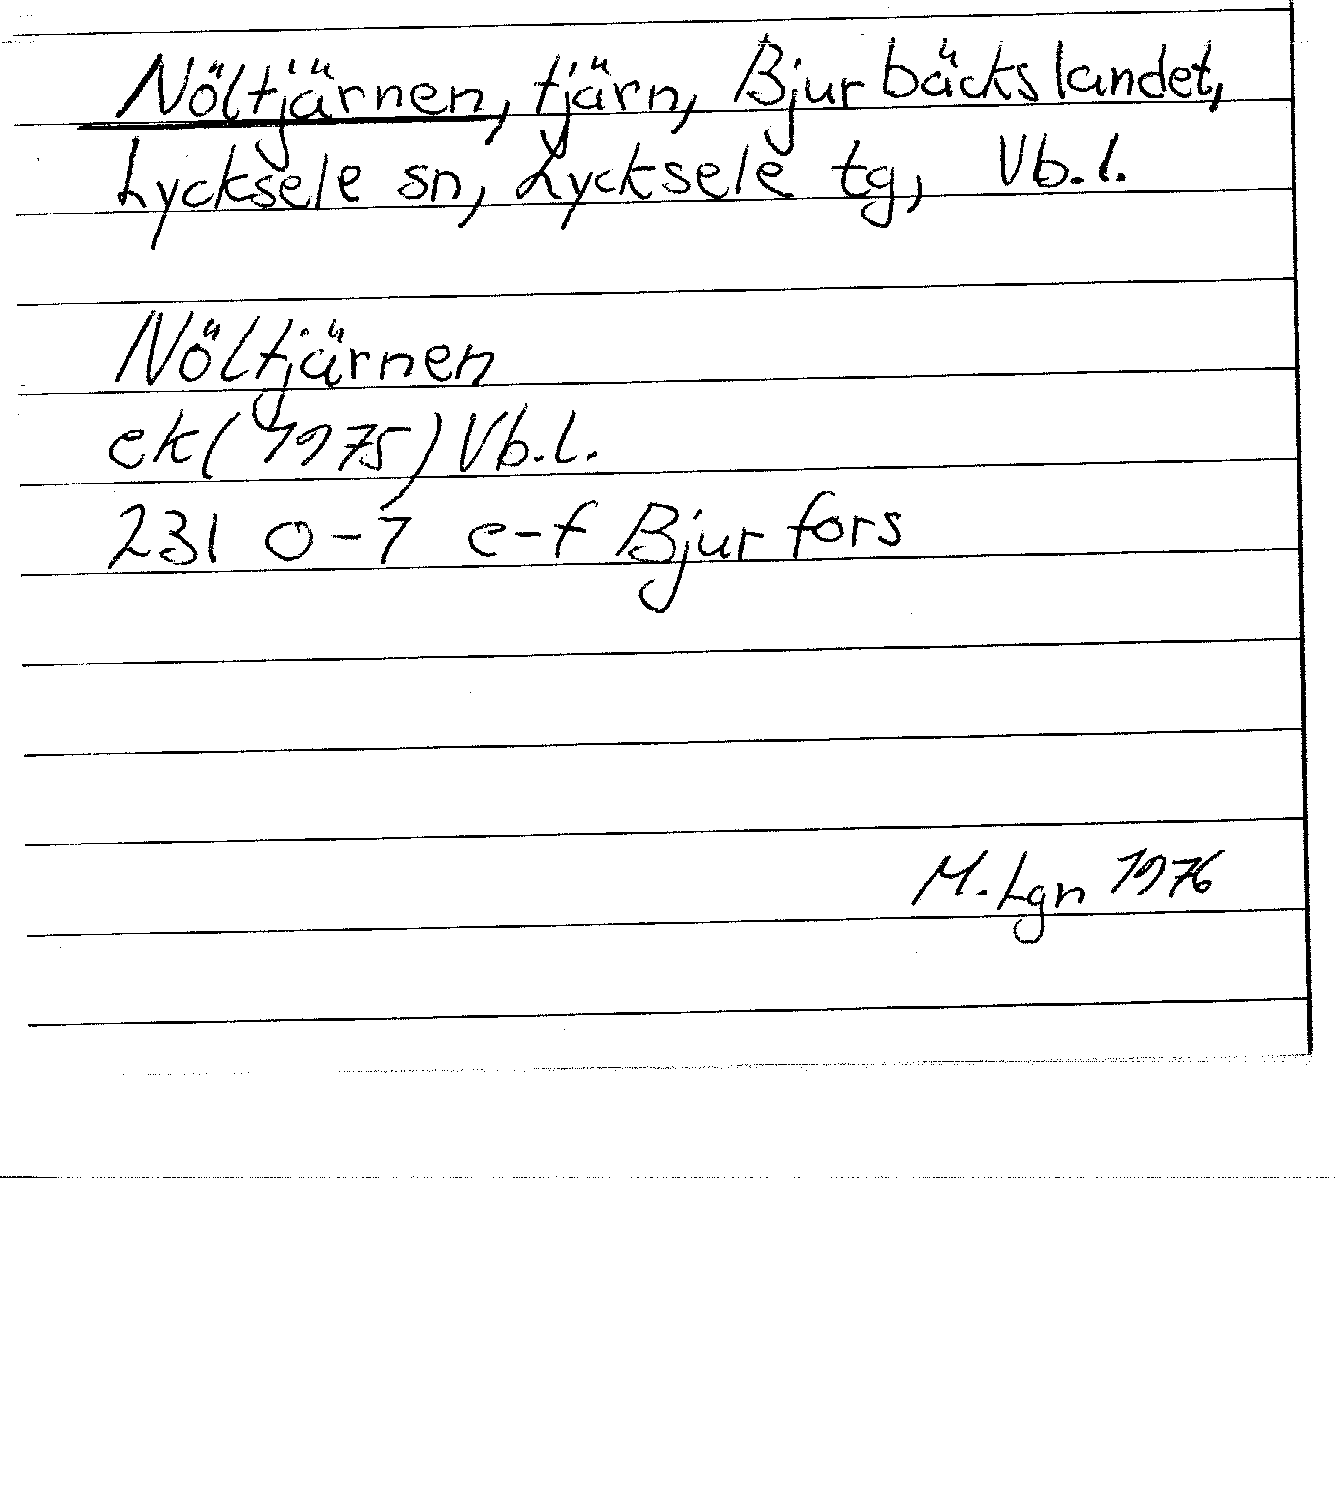 Nöltjärnen, tjärn, Bjurbäckslandet,
Lycksele sn, Lycksele tg, Vb.l.
Nöltjärnen
ek (1975) Vb.l.
231 0-7 e-f Bjurfors
M. Lgn 1976